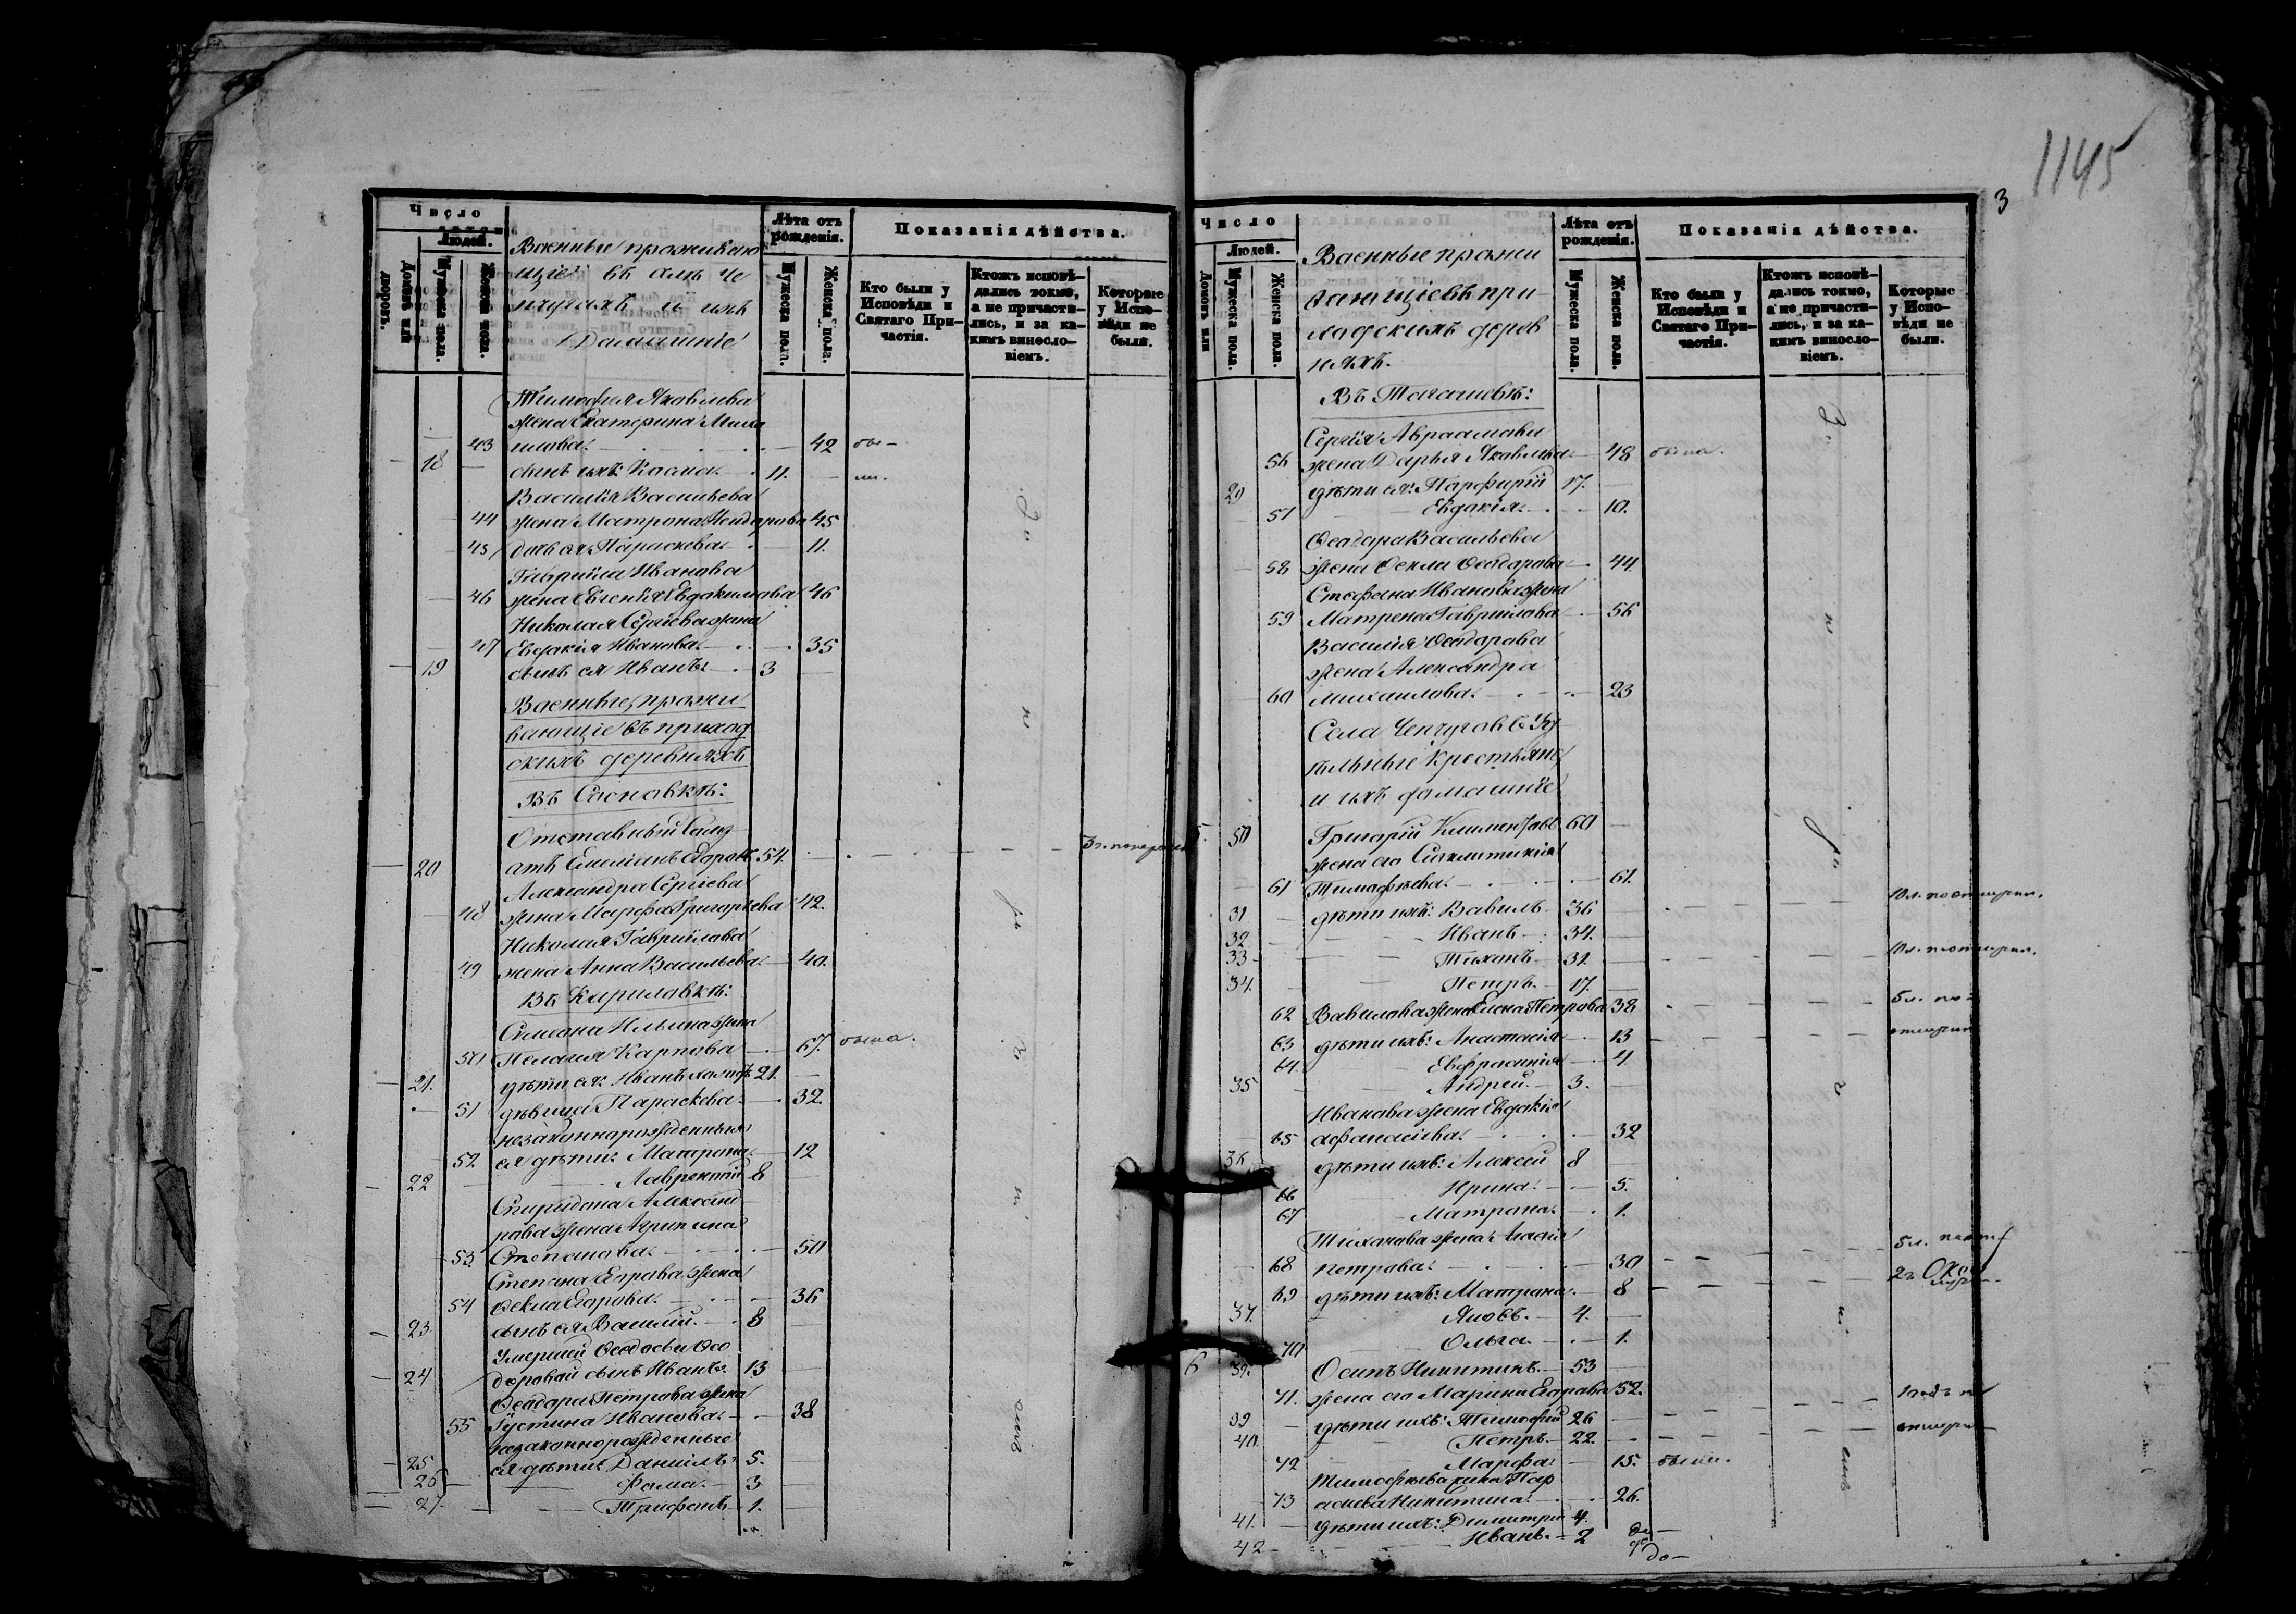 1145
3
Число
Людей.
Домовъ или дворовъ.
Мужеска пола.
Женска пола.
Военные прожива
щіе въ слѣ Че
пчугахъ и ихъ
Домашніе
Лѣта отъ рожденія.
Мужеска пола.
Женска пола.
Показанія дѣйства.
Кто были у Исповѣди и Святаго Причастія.
Ктожъ исповѣдались токмо, а не причастились, и за какимъ винословіемъ.
Которые у Исповѣди не были.
Тимофея Яковлева
жена Екатерина Миха
43 илова. 42
18 сынъ ихъ: Косма. 11.
Василія Васильева
44 жена Матрона Ѳеодорова 45
45 дочь ея Параскева. 11.
Гавріила Иванова
46 жена Евгенія Евдокимова 46
Николая Сергіева жена
47 Евдокія Иванова. 35
19 сынъ ея Иванъ. 3
Военные, прожи
вающіе въ приход
скихъ деревняхъ
Въ Сосновкѣ:
Отставный Солд
20 атъ Емиліанъ Егоровъ 54.
Александра Сергіева
48 жена Марфа Григорьева 42.
Николая Гавріилова
49 жена Анна Васильева. 40.
Въ Кириловкѣ:
Симеона Ильина жена
50 Пелагея Карпова 67. была.
21. дѣти ея: Иванъ 21.
51 дѣвица Параскева. 32.
незаконнорожденныя
52 ея дѣти: Матрона. 12
22 Лаврентій 8
Спиридона Александ
рова жена Агрипина
53 Степанова. 50
Степана Егорова жена
54 Ѳекла Егорова. 36
23 сынъ ея Василій. 8
Умершей Ѳеодосьи Ѳео
24 доровой сынъ Иванъ. 13
Ѳеодора Петрова жена
55 Іустина Иванова. 38
незаконнорожденные
25 ея дѣти: Даніилъ 5.
26 Фома. 3
27 Трифонъ 1.
Число
Людей.
Домовъ или
Мужеска пола.
Женска пола.
Военные прожи
вающіе въ при
ходскихъ дерев
няхъ.
Лѣта отъ рожденія.
Мужеска пола.
Женска пола.
Показанія дѣйства.
Кто были у Исповѣди и Святаго Причастія.
Ктожъ исповѣдались токмо, а не причастились, и за какимъ винословіемъ.
Которые у Исповѣди не были.
Сергія Авраамова
56 жена Дарья Яковлева. 48 была.
29 дѣти ея: Парфирій 17.
57 Евдокія. 10.
Ѳеодора Васильева
58 жена Ѳекла Ѳеодорова 44
Стефана Иванова жена
59 Матрена Гавріилова 56
Василія Ѳеодорова
жена Александра
60 Михаилова. 23
Села Чепчуговъ Уд
ѣльные крестьяне
и ихъ домашніе
5. 30 Григорій Климентовъ 60
жена его Сигклитикія
61 Тимофѣева. 61.
31 дѣти ихъ: Вавилъ 36
32 Иванъ 34.
33 Тихонъ 31.
34. Петръ. 17.
62 Вавилова жена Елена Петрова 38
63 дѣти ихъ: Анастасія 13
64 Евфросинія 4.
35 Андрей. 3.
Иванова жена Евдокія
65 Афанасіева. 32
36 дѣти ихъ: Алексѣй 8
66 Ирина. 5.
67 Матрона. 1.
Тихонова жена
68 Петрова. 30
69 дѣти ихъ: Матрона. 8
37. Яковъ. 4.
70 Ольга. 1.
6 38. Осипъ Никитинъ. 53
71. жена его Марина Егорова 52.
39 дѣти ихъ: Тимофей 26
40. Петръ 22.
72 Марфа. 15.
Тимофѣева жена Пар
73 аскева Никитина. 26.
41. дѣти ихъ: Димитрій 4.
42 Иванъ. 2